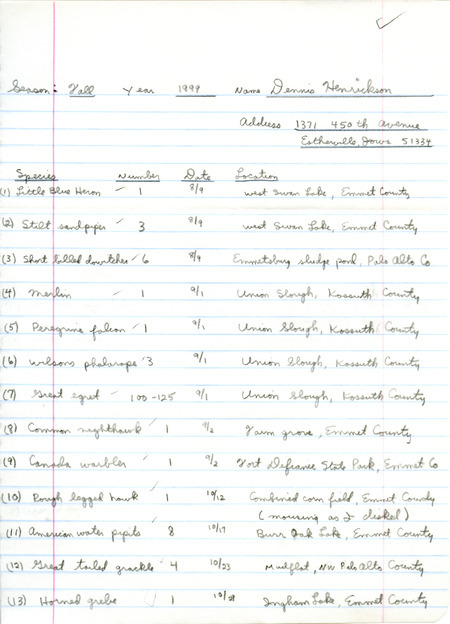 Season: Fall Year 1999 Name Dennis Henrickson
Address 1371 450th Avenue
Estherville, Iowa 51334
Species Number Date Location
(1) Little Blue Heron 1 8/9 west Swan Lake, Emmet County
(2) Stilt sandpiper 3 8/9 west Swan Lake, Emmet County
(3) Short billed dowitcher 6 8/9 Emmetsburg sludge pond, Palo Alto Co
(4) Merlin 1 9/1 Union Slough, Kossuth County
(5) Peregrine falcon 1 9/1 Union Slough, Kossuth County
(6) Wilsons phalarope 3 9/1 Union Slough, Kossuth County
(7) Great egret 100-125 9/1 Union Slough, Kossuth County
(8) Common nighthawk 1 9/2 Farm grove, Emmet County
(9) Canada warbler 1 9/2 Fort Defiance State Park, Emmet Co
(10) Rough legged hawk 1 10/12 Combined corn field, Emmet County
(mousing as I disked)
(11) American water pipits 8 10/17 Burr Oak Lake, Emmet County
(12) Great tailed grackle 4 10/23 Mudflat, NW Palo Alto County
(13) Horned grebe 1 10/28 Ingham Lake, Emmet County